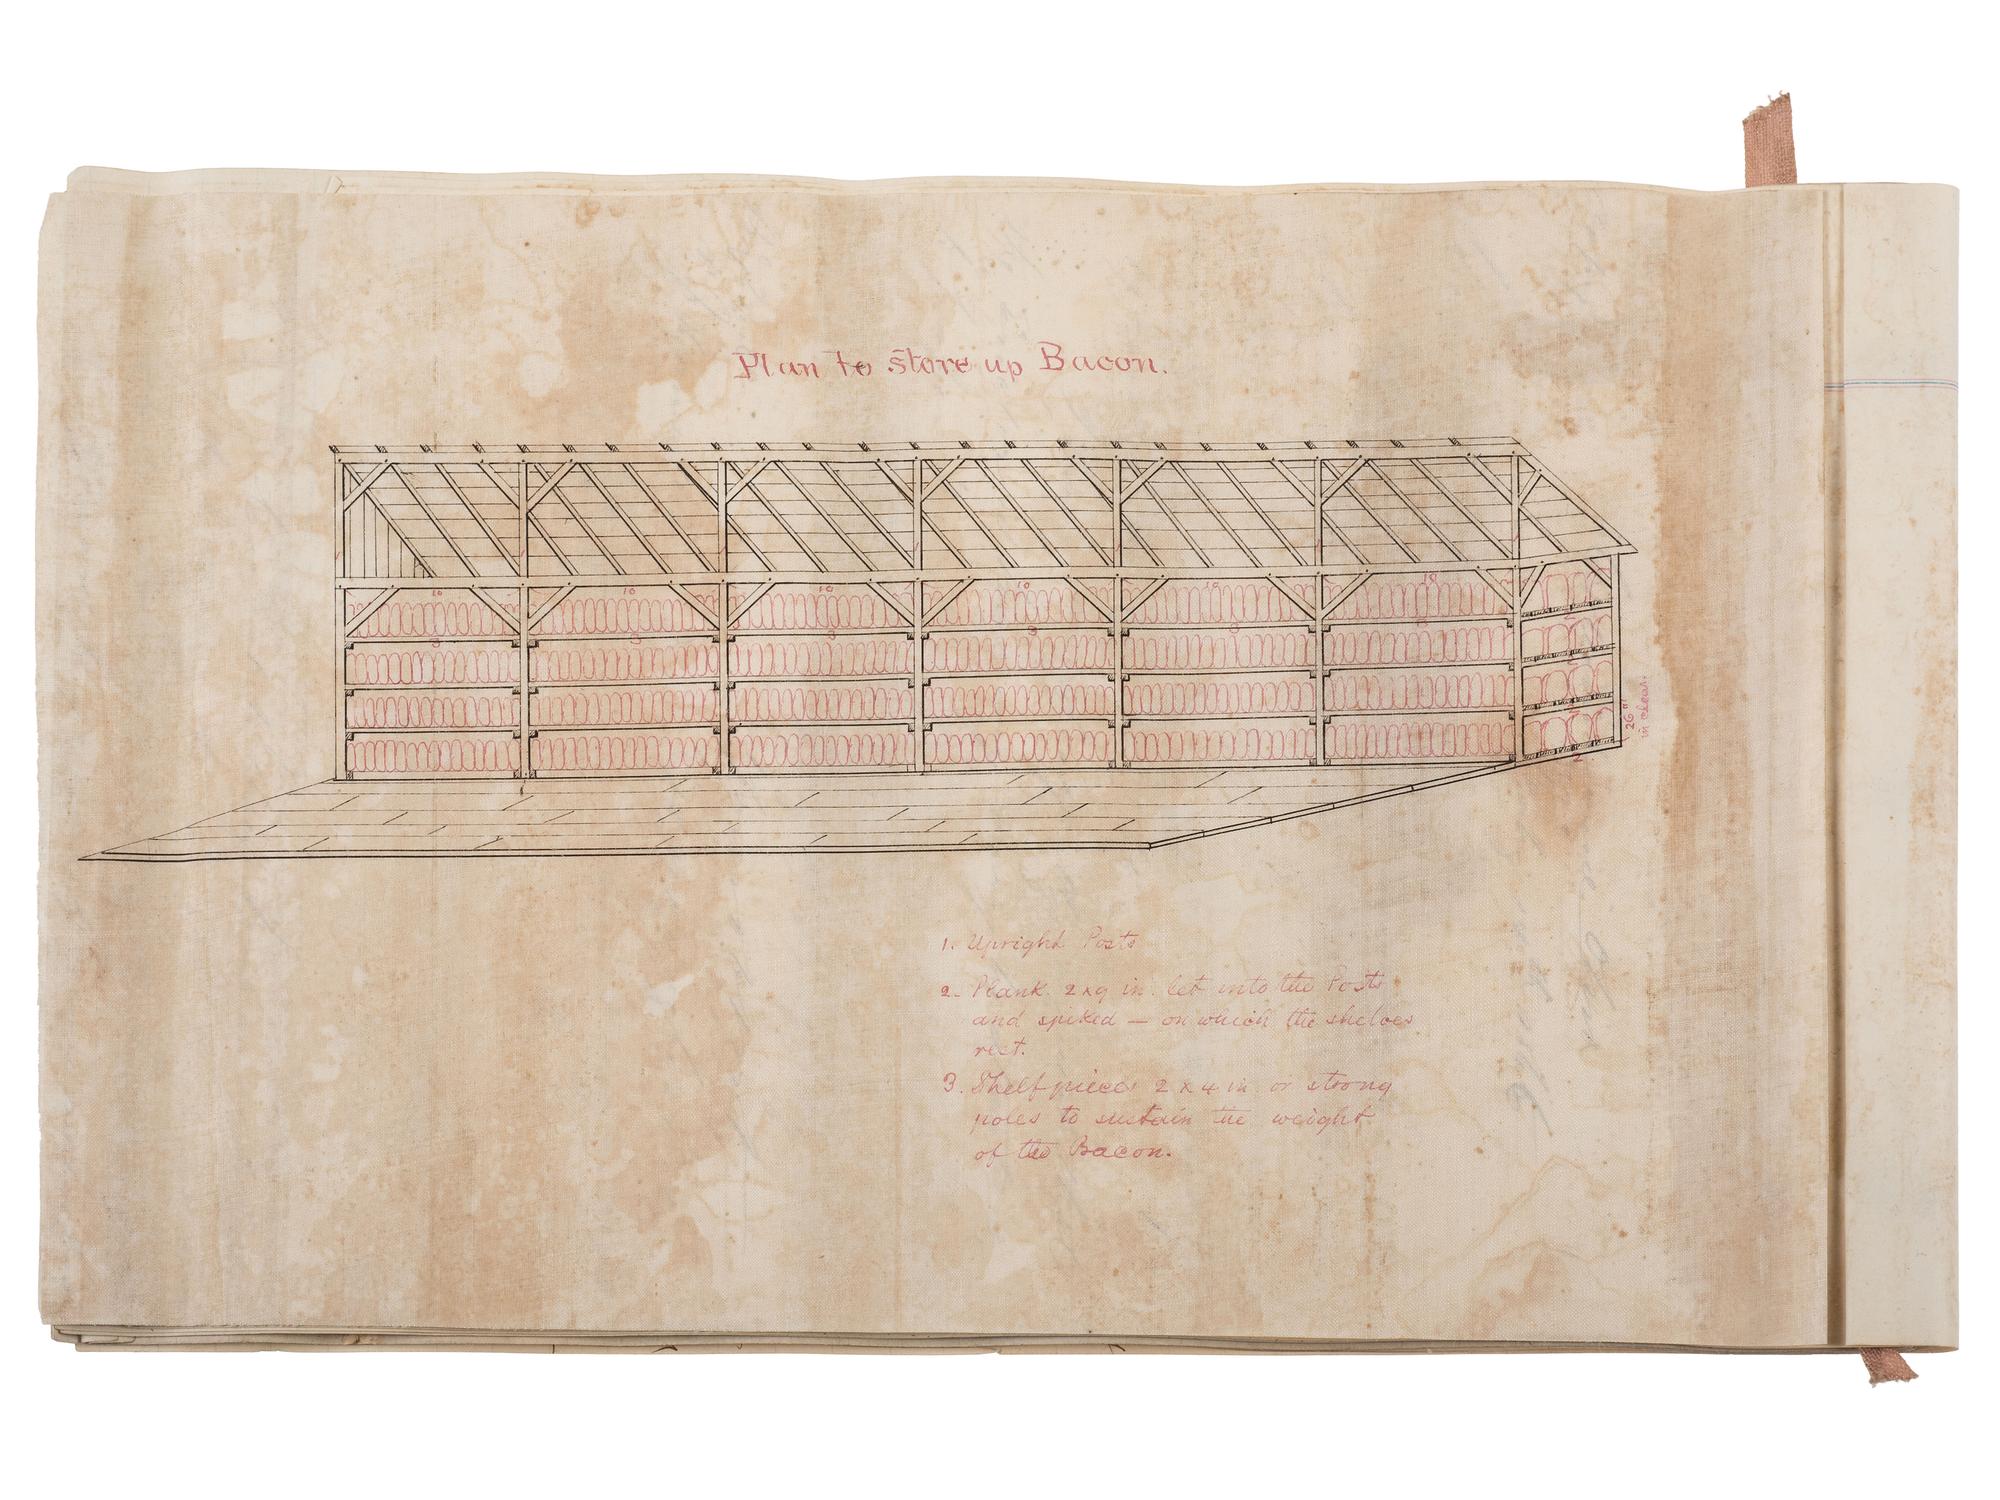 Plan to store up Bacon.
10 10 10 10 10 10
3 3 3 3 3
1 1 1 1
2
2
2
26"
in clear.
2
1. Upright Posts
2. Plank 2 x 9 in. let into the Posts
and spiked — on which the shelves
rest.
3. Shelf pieces 2 x 4 in. or strong
poles to sustain the weight
of the Bacon.